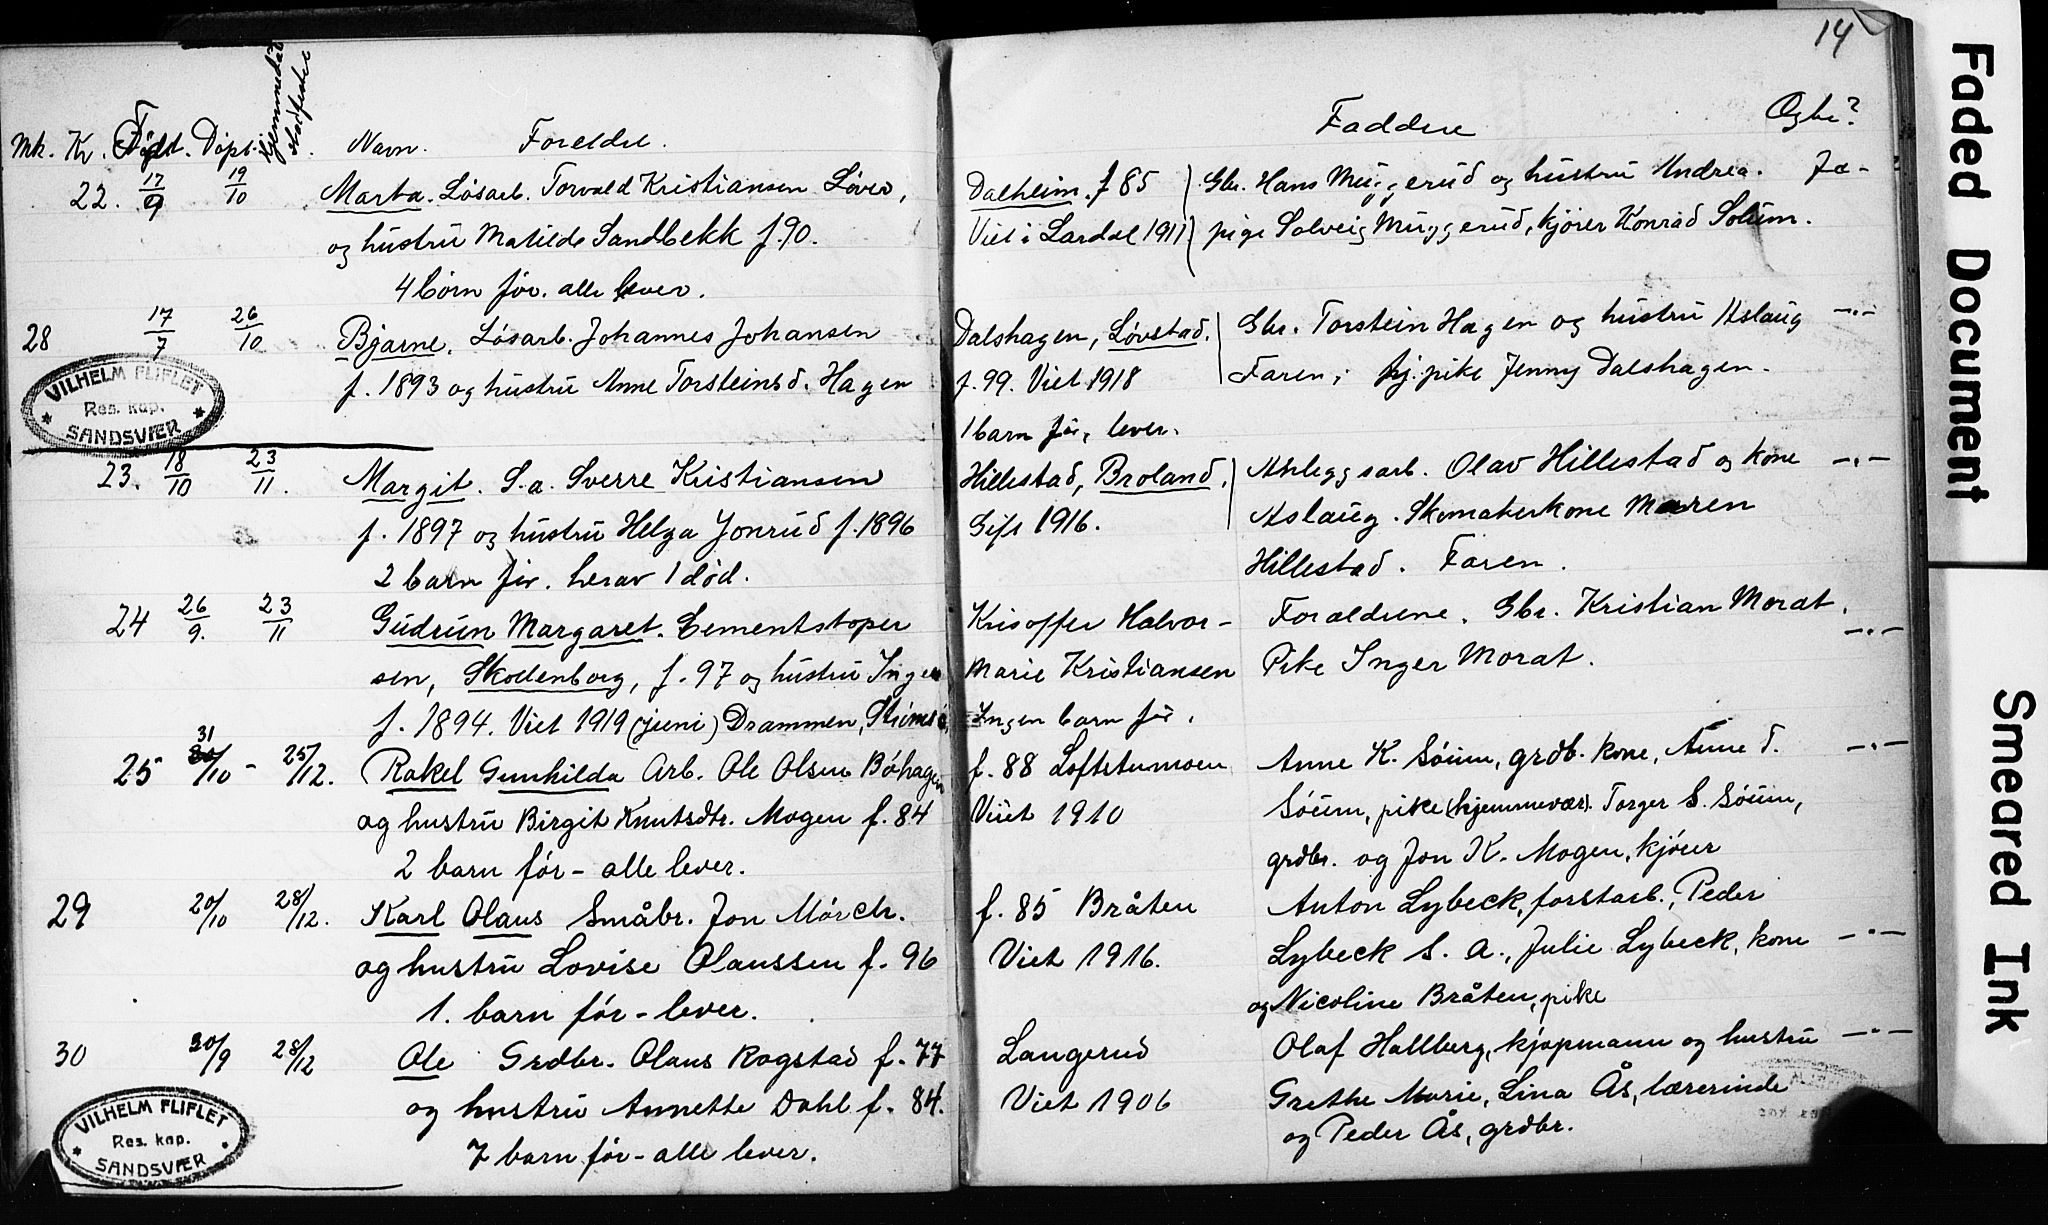 14
Mk. Kv. Født. Døpt. Hjemmedåb stadfestet Navn. Foreldre. Faddere Ogbe?
22. 17/9 19/10 Marta. Løsarb. Torvald Kristiansen Løver, Dalheim. f 85 Gbr. Hans Muggerud og hustru Andrea. Ja -
og hustru Matilde Sandbekk f. 90. Viet i Lardal 1911 pige Solveig Muggerud, kjører Konrad Solum.
4 børn før. alle lever.
28 17/7 26/10 Bjarne. Løsarb. Johannes Johansen Dalshagen, Løvstad. Gbr. Torstein Hagen og hustru Aslaug -"-
f. 1893 og hustru Anne Torsteinsd. Hagen f. 99. Viet 1918 Faren; hj. pike Jenny Dalshagen.
VILHELM FLIFLET
Res. kap.
SANDSVÆR
1 barn før, lever.
23. 18/10 23/11. Margit. S.a. Sverre Kristiansen Hillestad, Broland. Anleggsarb. Olav Hillestad og kone -"-
f. 1897 og hustru Helga Jonrud f. 1896 Gift 1916. Aslaug. Skomakerkone Maren
2 barn før. herav 1 død. Hillestad. Faren.
24 26/9. 23/11 Gudrun Margaret. Cementstøper Krisoffer Halvor- Foraldrene. Gbr. Kristian Morat.
sen, Skodenborg, f. 97 og hustru Inger Marie Kristiansen Pike Inger Morat. -"-
f. 1894. Viet 1919 (juni) Drammen, Strømsø, Ingen barn før.
25 31/10 - 25/12. Rakel Gunhilda Arb. Ole Olsen Bøhagen f. 88 Loftstumoen Anne K. Søum, grdb. kone, Anne T. -"-
og hustru Birgit Knutsdtr. Mogen f. 84 Viet 1910 Søum, pike (hjemmevær). Torger S. Søum,
2 barn før - alle lever. grdbr. og Jon K. Mogen, kjører
29 20/10 28/12. Karl Olaus Småbr. Jon Mørch. f. 85 Bråten Anton Lybeck, forstarb., Peder
og hustru Lovise Olaussen f. 96 Viet 1916. Lybeck S. A., Julie Lybeck, kone -"-
1. barn før - lever. og Nicoline Bråten, pike
30 30/9 28/12 Ole Grdbr. Olaus Rogstad f. 77 Langerud Olaf Hallberg, kjøpmann og hustru -"-
og hustru Annette Dahl f. 84. Viet 1906 Grethe Marie, Lina Ås, lærerinde
7 barn før - alle lever. og Peder Ås, grdbr.
VILHELM FLIFLET
Res. kap.
SANDSVÆR
Faded Document
Smeared Ink